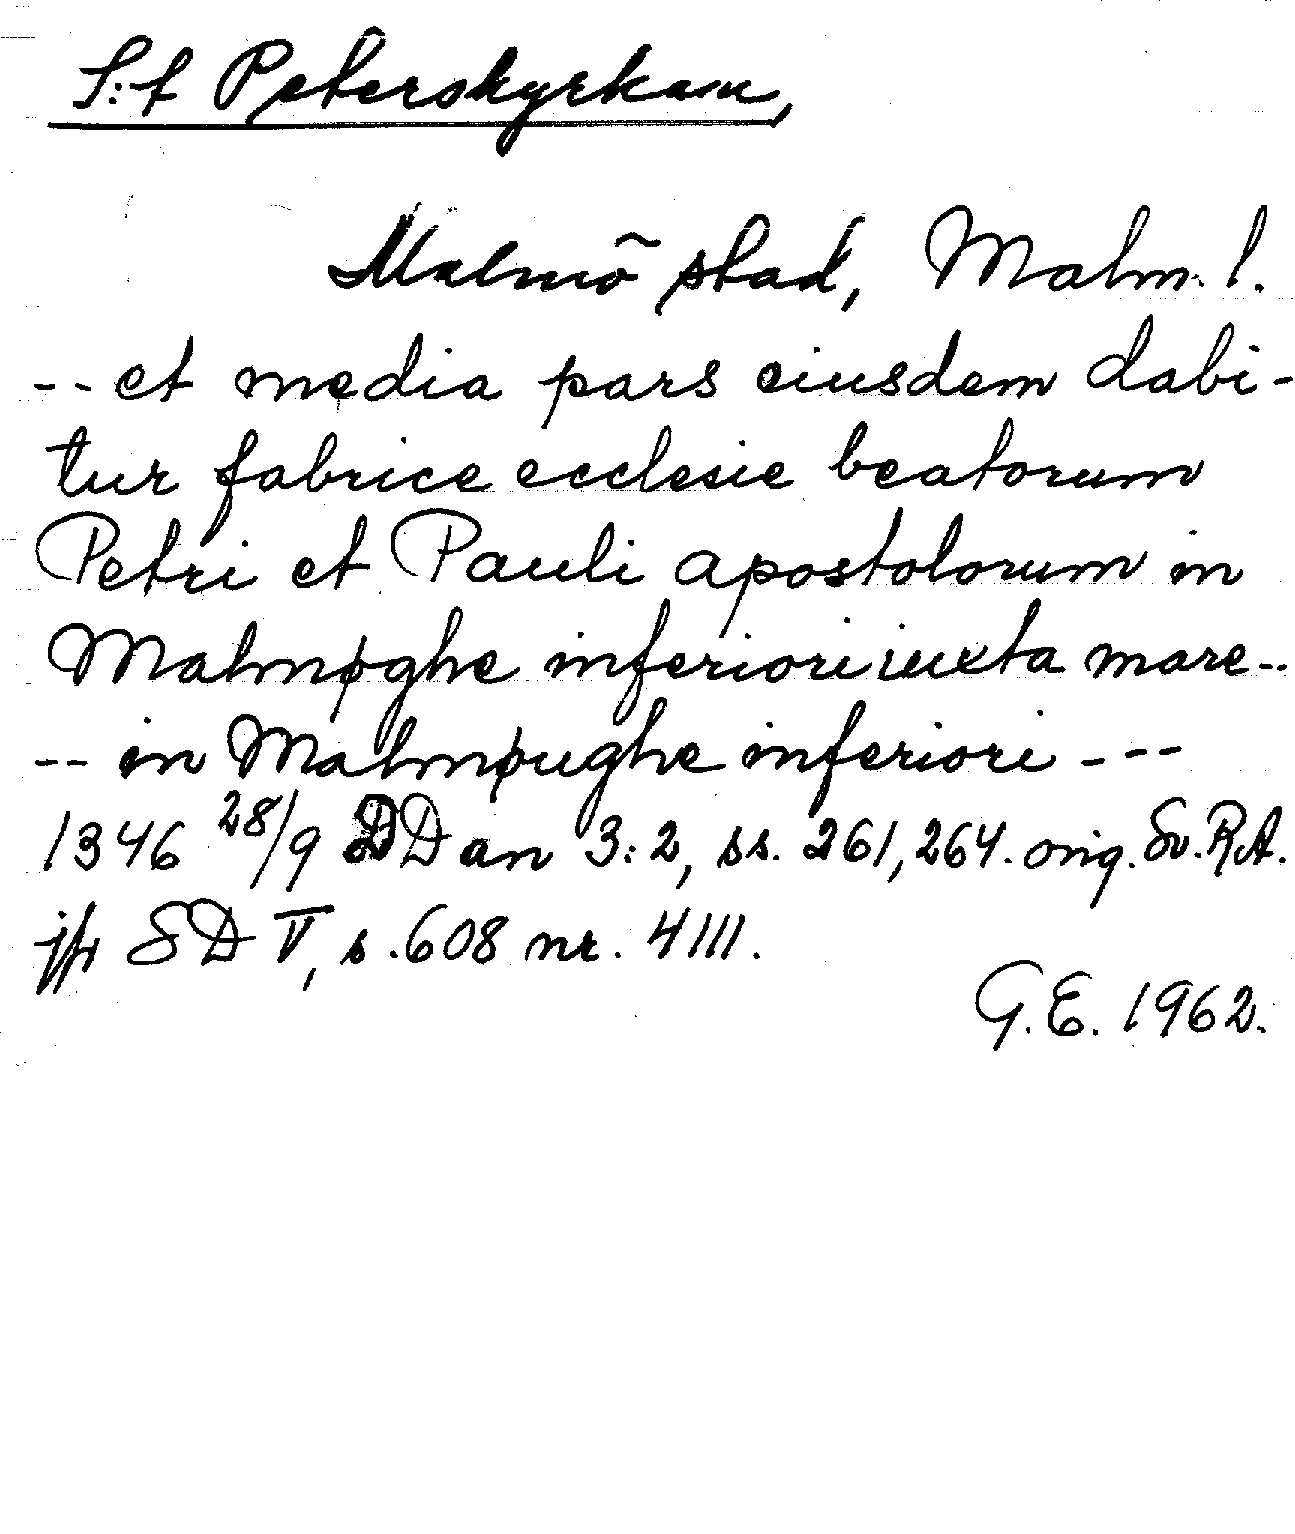 S:t Peterskyrkan,
Malmö stad, Malm. l.
-- et media pars eiusdem dabi-
tur fabrice ecclesie beatorum
Petri et Pauli apostolorum in
Malmøghe inferiori iuxta mare --
-- in Malmøughe inferiori ---
1346 28/9 DDan 3:2, ss. 261, 264. orig. Sv. RA.
jfr SD V, s. 608 nr. 4111.
G.E. 1962.